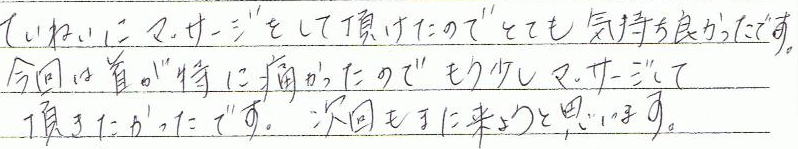 ていねいにマッサージをして頂けたのでとても気持ち良かったです。
今回は首が特に痛かったのでもう少しマッサージして
頂きたかったです。次回もまた来ようと思います。